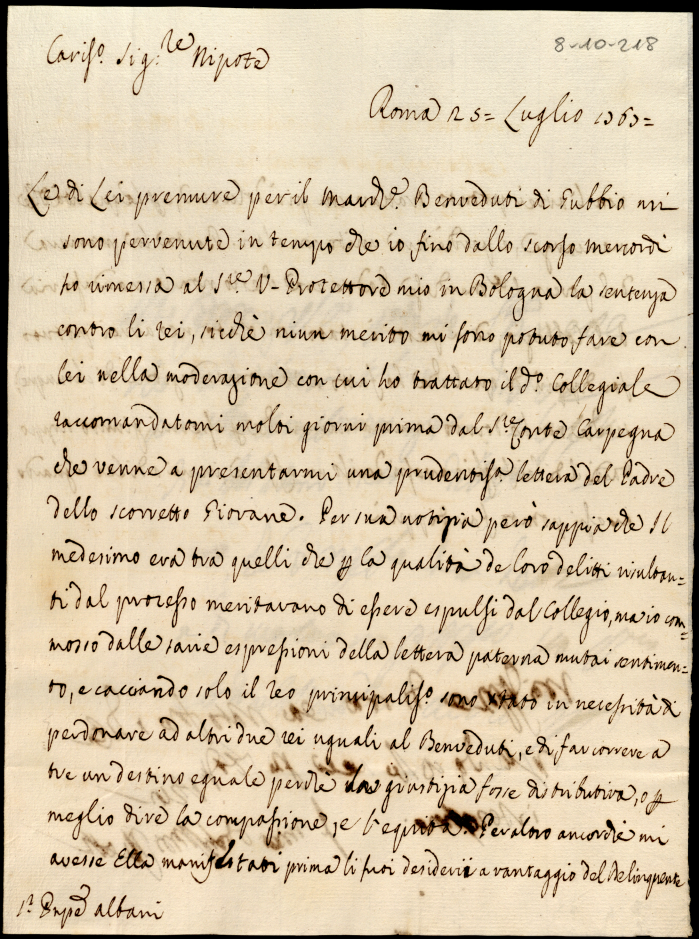 8-10-218
Cariso. Sig.re Nipote
Roma 25= Luglio 1763=
Le di Lei premure per il March.e Benveduti di Gubbio mi
sono pervenute in tempo che io fino dallo scorso mercordì
ho rimessa al S.re V-Protettore mio in Bologna la sentenza
contro li rei, sicchè niun merito mi sono potuto fare con
lei nella moderazione con cui ho trattato il d.o Collegiale
raccomandatomi molti giorni prima dal S.re Conte Carpegna
che venne a presentarmi una prudentisa. lettera del Padre
dello scorretto Giovane. Per sua notizia però sappia che Il
medesimo era tra quelli che p la qualità de loro delitti risultan=
ti dal processo meritavano di essere espulsi dal Collegio, ma io com=
mosso dalle savie espressioni della lettera paterna mutai sentimen=
to, e cacciando solo il reo principaliso. sono stato in necessità di
perdonare ad altri due rei uguali al Benveduti, e di far correre a
tre un destino eguale perchè la giustizia fosse distributiva, o p
meglio dire la compassione, e l'equità. Per altro ancorchè mi
avesse Ella manifestati prima li suoi desiderii a vantaggio del Delinquente
albani